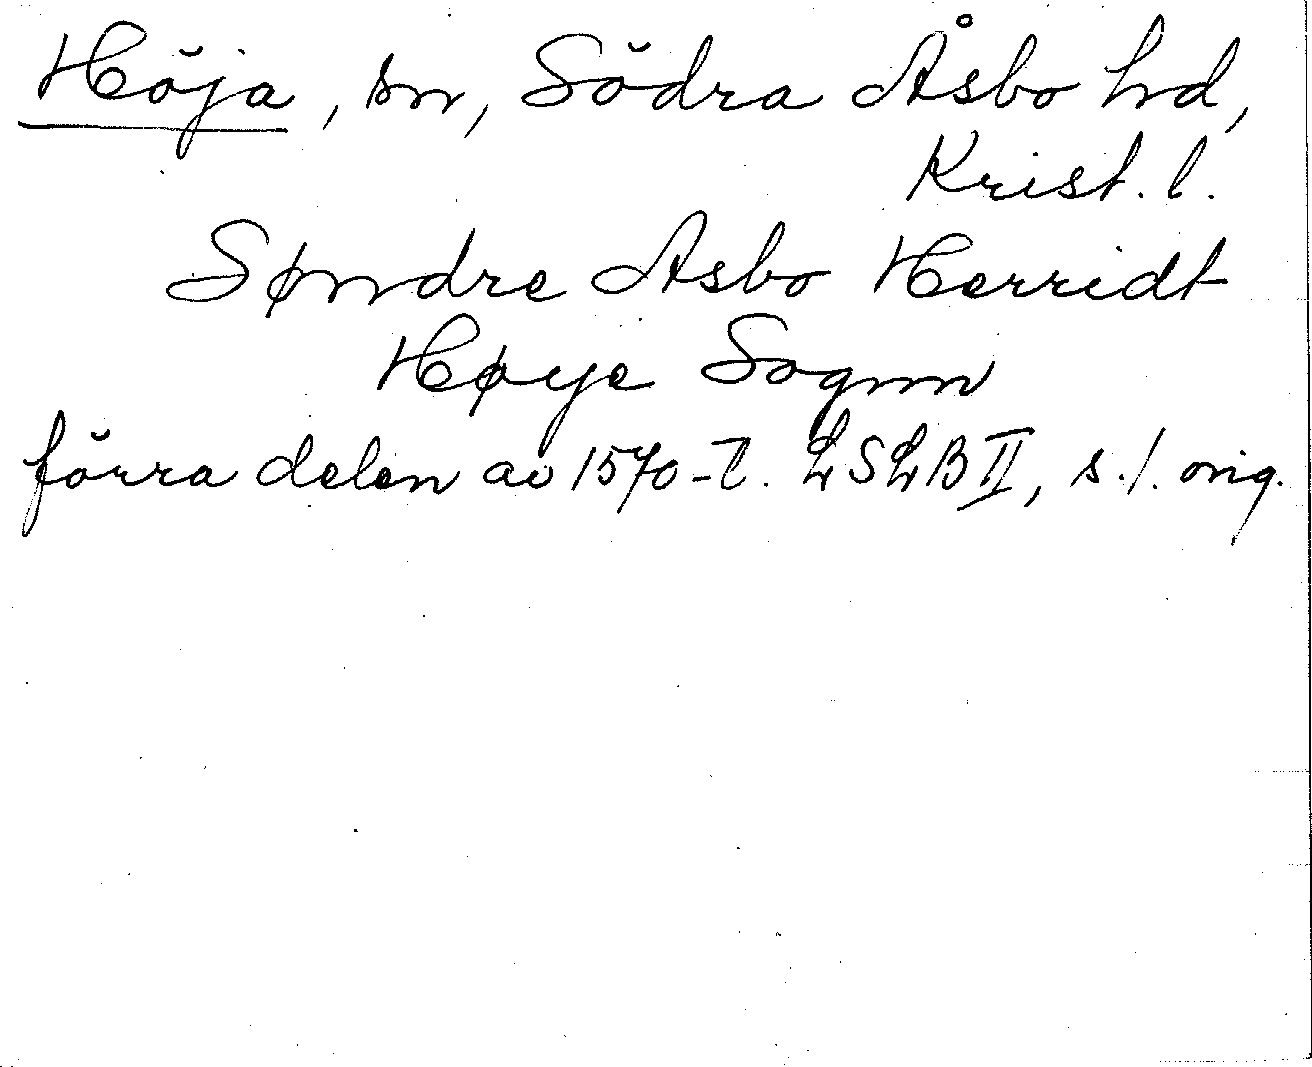 Höja, sn, Södra Åsbo hd,
Krist. l.
Søndre Asbo Herridt
Høye Sognn
förra delen av 1570-t. LSLB II, s. 1. orig.